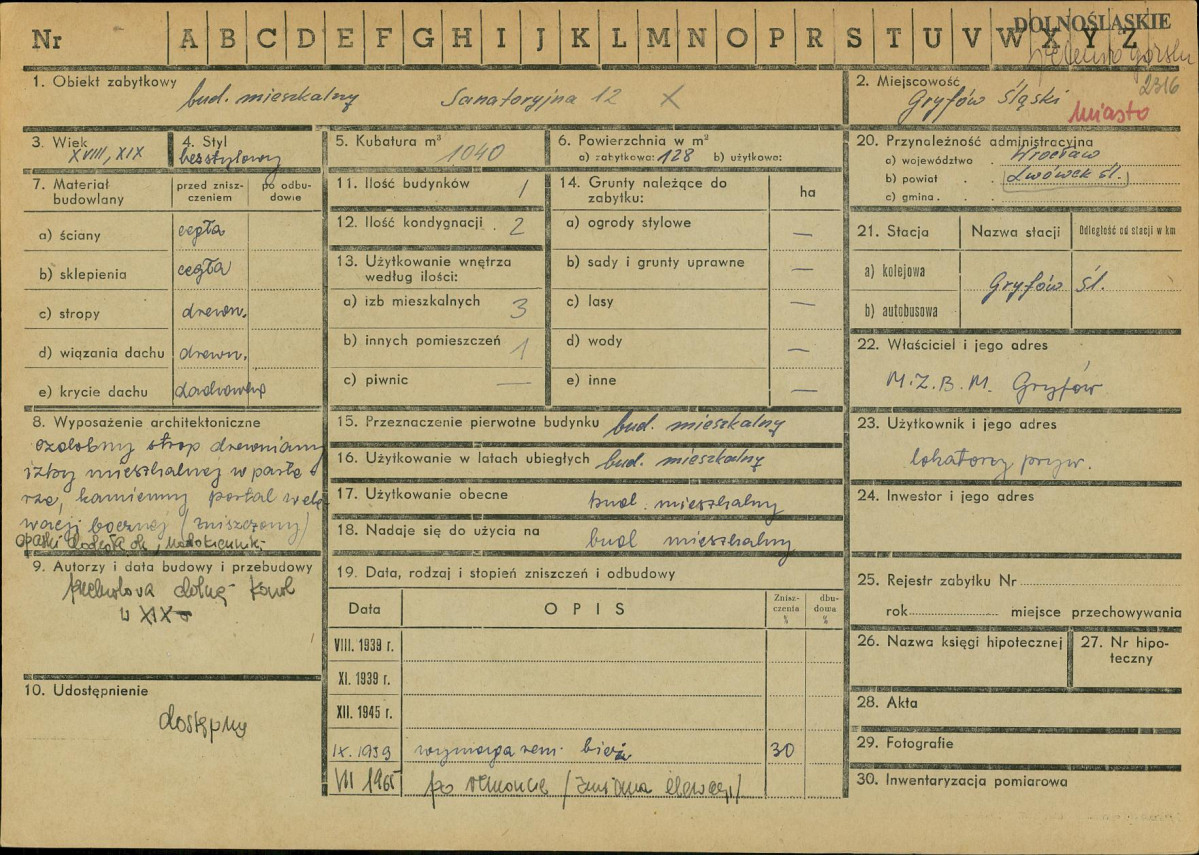 DOLNOŚLĄSKIE
Nr A B C D E F G H I J K L M N O P R S T U V W X Y Z
2316
1. Obiekt zabytkowy
bud. mieszkalny Sanatoryjna 12 X
2. Miejscowość
Gryfów Śląski
miasto
3. Wiek
XVIII, XIX
4. Styl
bezstylowy
5. Kubatura m³
1040
6. Powierzchnia w m²
a) zabytkowa: 128 b) użytkowa:
20. Przynależność administracyjna
a) województwo . Wrocław
b) powiat . . Lwówek śl.
c) gmina . .
7. Materiał budowlany
przed znisz-
czeniem
po odbu-
dowie
a) ściany cegła
b) sklepienia cegła
c) stropy drewn.
d) wiązania dachu drewn.
e) krycie dachu dachówka
11. Ilość budynków 1
12. Ilość kondygnacji . 2
13. Użytkowanie wnętrza
według ilości:
a) izb mieszkalnych 3
b) innych pomieszczeń 1
c) piwnic —
14. Grunty należące do
zabytku:
ha
a) ogrody stylowe —
b) sady i grunty uprawne —
c) lasy —
d) wody —
e) inne —
21. Stacja Nazwa stacji Odległość od stacji w km
a) kolejowa
Gryfów Śl.
b) autobusowa
22. Właściciel i jego adres
M.Z.B.M. Gryfów
8. Wyposażenie architektoniczne
ozdobny strop drewniany
izby mieszkalnej w parte-
rze, kamienny portal w ele-
wacji bocznej (zniszczony)
15. Przeznaczenie pierwotne budynku bud. mieszkalny
16. Użytkowanie w latach ubiegłych bud. mieszkalny
17. Użytkowanie obecne bud. mieszkalny
18. Nadaje się do użycia na bud mieszkalny
23. Użytkownik i jego adres
lokatorzy pryw.
24. Inwestor i jego adres
9. Autorzy i data budowy i przebudowy
XIX
10. Udostępnienie
dostępny
19. Data, rodzaj i stopień zniszczeń i odbudowy
Data OPIS
Znisz-
czenia
%
dbu-
dowa
%
VIII. 1939 r.
XI. 1939 r.
XII. 1945 r.
IX. 1959 wymaga rem. bież. 30
VII 1965 po remoncie (zmiana elewacji)
25. Rejestr zabytku Nr
rok miejsce przechowywania
26. Nazwa księgi hipotecznej
27. Nr hipo-
teczny
28. Akta
29. Fotografie
30. Inwentaryzacja pomiarowa